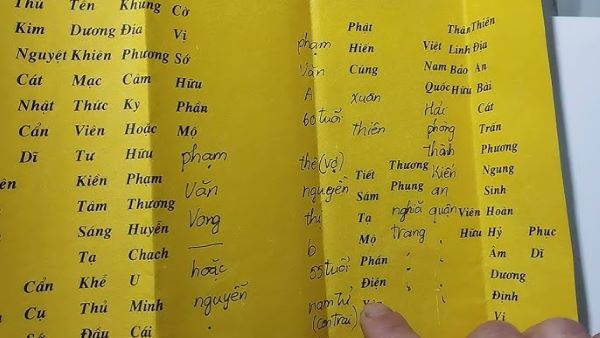 Phục Dĩ
Thiên Địa An Bài Cát Trần Phương Ngung Sinh Hoàn Hỷ Âm Dương Định Vị
Thần Linh Bảo Hữu Viên Hữu
Việt Nam Quốc Hải phòng thành Kiến an quận
Thương Phung nghĩa trang
Phật Hiến Cúng xuân thiên Tiết Sám Tạ Mộ Phần Điện
phạm Văn A 60 tuổi thê (vợ) nguyễn thị b 55 tuổi nam tử (con trai)
Cờ Vị Sớ Hữu Phần Mộ phạm Văn Vong — hoặc nguyễn
Khung Địa Phương Cảm Ky Hoặc Hữu Phạm Thương Huyễn Chạch U Minh Cái
Tên Dương Khiên Mạc Thức Viên Tư Kiến Tâm Sáng Tạ Khể Thủ Đầu
Thủ Kim Nguyệt Cát Nhật Cẩn Dĩ
Cẩn Cụ Sớ